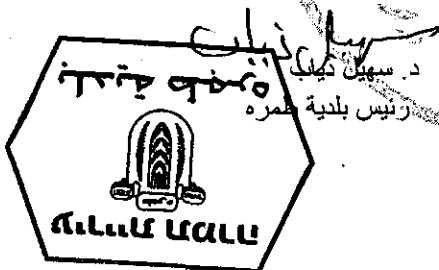 سهيل ذياب
د. سهيل ذياب
رئيس بلدية طمره
بلدية طمره
עיריית טמרה